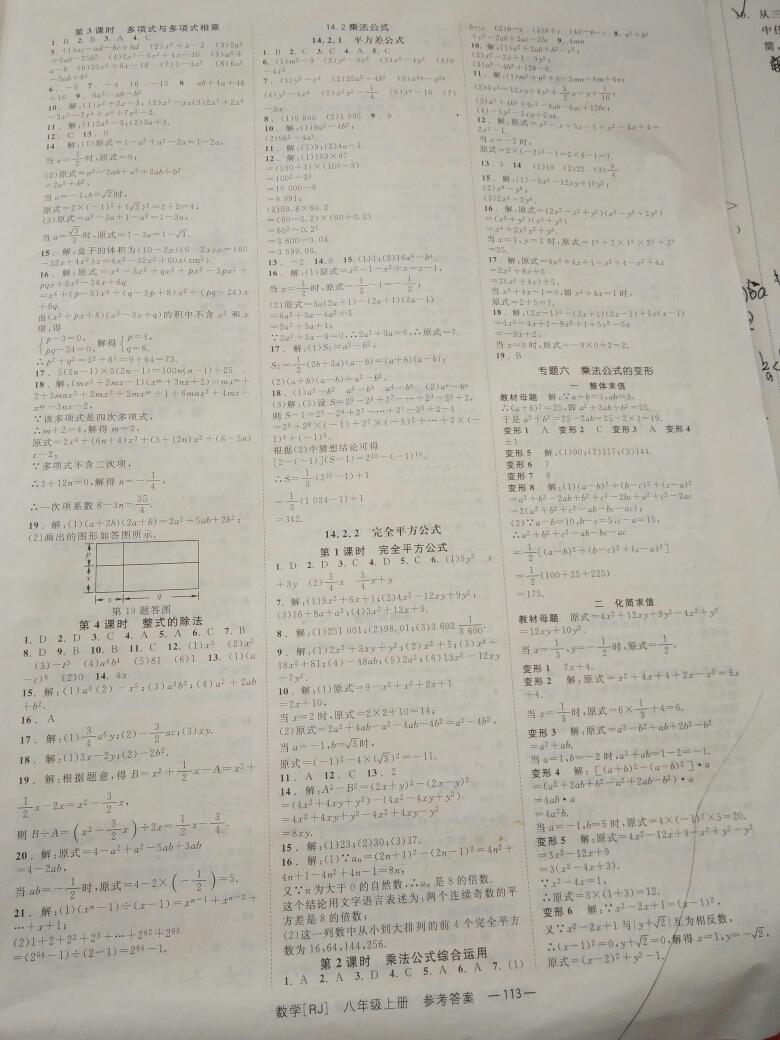 第3课时 多项式与多项式相乘
1. B 2. B 3. A 4. C
11. 解:(1)2a²-3;(2)3a+3.
12. C 13. 0
14. 解:(1)原式=1-a²+a²-2a=1-2a,
当a=1/2时,原式=0;
(2)原式=a²-2ab+a²+2ab+b²
=2a²+b²,
当a=-1,b=√2时,
原式=2×(-1)²+(√2)²=2+2=4;
(3)原式=a²-3a+1-a²=1-3a,
当a=√3/3时,原式=1-3a=1-√3.
15. 解:盒子的体积为(10-2x)(6-2x)x=(60
-32x+4x²)x=4x³-32x²+60x(cm³).
16. 解:原式=x⁴-3x³+qx²+px³-3px²+
pqx+8x²-24x+8q
=x⁴+(p-3)x³+(q-3p+8)x²+(pq-24)x
+8q.
由(x²+px+8)(x²-3x+q)的积中不含x³和x
项,得
p-3=0, 解得 p=3,
pq-24=0, q=8.
∴p²+q²=3²+8²=9+64=73.
17. 5(2n-1)×5(2n-1)=100n(n-1)+25
18. 解:(mx²+2mx-1)(xᵐ+3nx+2)=mxᵐ⁺
∵该多项式是四次多项式,
∴m+2=4,解得m=2,
原式=2x⁴+(6n+4)x³+(3+12n)x²+(8-3n)
x-2,
∵多项式不含二次项,
∴3+12n=0,解得n=-1/4,
∴一次项系数8-3n=35/4.
19. 解:(1)(a+2b)(2a+b)=2a²+5ab+2b²;
(2)画出的图形如答图所示.
p
x
x q
第19题答图
第4课时 整式的除法
1. D 2. D 3. C 4. A 5. A 6. C 7. B
8. D 9. B 10. B 11. C 12. (1)x³ (2)x²
(3)-t⁵ (4)a⁴b⁴ (5)81 (6)1 13. (1)(a
-c)⁶ (2)0 14. 4x
15. 解:(1)a³(2)-x⁵;(3)a³b⁵;(4)a²+2ab
+b².
16. A
17. 解:(1)-3/4a⁶y;(2)-3/2ac;(3)xy.
18. 解:(1)3x-2y;(2)-2b².
19. 解:根据题意,得B=x²+1/2x-A=x²+
1/2x-2x=x²-3/2x,
则B÷A=(x²-3/2x)÷2x=1/2x-3/4.
20. 解:原式=4-a²+a²-5ab+3ab
=4-2ab,
当ab=-1/2时,原式=4-2×(-1/2)=5.
21. 解:(1)(xⁿ-1)÷(x-1)=xⁿ⁻¹+xⁿ⁻²+
…+x+1;
(2)1+2+2²+2³+…+2⁶²+2⁶³
=(2⁶⁴-1)÷(2-1)=2⁶⁴-1.
14.2乘法公式
14.2.1 平方差公式
1. B 2. C 3. C 4. A 5. C
8. (1)9 960 (2)1 995 9. 9
10. 解:(1)9a²-4b²;
11. 解:(1)9;(2)4a-1.
12. 解:(1)103×97
=(100+3)×(100-3)
=100²-3²
=10 000-9
=9 991;
(2)59.8×60.2
=(60-0.2)×(60+0.2)
=60²-0.2²
=3 600-0.04
=3 599.96.
13. -2 14. 0 15. (1)1;(2)16a⁴-b⁴.
16. 解:(1)原式=x²-1-x²+x=x-1,
当x=1/2时,原式=1/2-1=-1/2;
(2)原式=3a(2a+1)-(2a+1)(2a-1)
=6a²+3a-4a²+1
=2a²+3a+1,
∵2a²+3a-6=0,∴2a²+3a=6,∴原式=7.
17. 解:(1)S₁=a²-b²,
S₂=1/2(2b+2a)(a-b)=(a+b)(a-b);
(2)(a+b)(a-b)=a²-b².
18. (1)a²-b² a³-b³ a⁴-b⁴ (2)aⁿ-bⁿ
(3)解:(3)设S=2⁹-2⁸+2⁷-…+2³-2²+2,
则S-1=2⁹-2⁸+2⁷-…+2³-2²+2-1
根据(2)中猜想结论可得
[2-(-1)](S-1)=2¹⁰-(-1)¹⁰.
∴S=1/3(2¹⁰-1)+1
=1/3(1 024-1)+1
=342.
14.2.2 完全平方公式
第1课时 完全平方公式
1. D 2. D 3. C 4. D 5. C 6. (1)9y² x
+3y (2)3/4x 3/4x+y
7. 解:(1)9x²+6x+1;(2)4x²-12xy+9y²;
(3)16+8a+a²;(4)3x²+12x+9.
8. 解:(1)251 001;(2)98.01;(3)3 602 1/3 600.
9. 解:(1)2x²+3xy+y²;(2)x²+5;(3)x⁴-
18x²+81;(4)-48ab;(5)2a²;(6)13x²-12xy
-7y².
10. 解:(1)原式=9-x²+x²+2x+1
=2x+10,
当x=2时,原式=2×2+10=14;
(2)原式=2a²+4ab-a²-4ab-4b²=a²-4b²,
当a=-1,b=√3时,
原式=(-1)²-4×(√3)²=-11.
11. A 12. C 13. 2
14. 解:A²-B²=(2x+y)²-(2x-y)²
=(4x²+4xy+y²)-(4x²-4xy+y²)
=4x²+4xy+y²-4x²+4xy-y²
=8xy.
15. 解:(1)23;(2)30;(3)37.
16. 解:(1)∵aₙ=(2n+1)²-(2n-1)²=4n²+
4n+1-4n²+4n-1=8n,
又∵n为大于0的自然数,∴aₙ是8的倍数.
这个结论用文字语言表述为:两个连续奇数的平
方差是8的倍数;
(2)这一列数中从小到大排列的前4个完全平方
数为16,64,144,256.
第2课时 乘法公式综合运用
1. A 2. A 3. D 4. C 5. A 6. A 7. (1)
b-c (2)b-c (3)b+c (4)-6-c 8. a²+b²
+c²-2ab+2ac-2bc 9. 4mn
10. 解:(1)a²+2ab+b²-c²;
(2)x²-2x+1-9y²;
(3)a²-4b²+12b-9.
11. 解:(1)m²+n²+9-2mn-6m+6n;
当x=-2时,
原式=2×(-2)²-1=2×4-1=7.
13. 3 14. (1)19 (2)22 (3)9/4
15. 解:(1)-5x²-12xy+10y²;
16. 解:原式=(2x²-x²+y²)(x²-y²+2y²)
=(x²+y²)(x²+y²)
=x⁴+2x²y²+y⁴,
当x=1,y=2时,原式=1⁴+2×1²×2²+2⁴
=25.
17. 解:原式=4x²+4x+1-x²+4-x²+4x
=2x²+8x+5
=2(x²+4x)+5,
当x²+4x-1=0,即x²+4x=1时,
原式=2+5=7.
18. 解:(2x-1)²-(3x+1)(3x-1)+5x(x-1)
=4x²-4x+1-9x²+1+5x²-5x
=-9x+2,
当x=0时,原式=-9×0+2=2.
19. B
专题六 乘法公式的变形
一 整体求值
教材母题 解:∵a+b=5,ab=3,
∴(a+b)²=25,即a²+2ab+b²=25,
于是a²+b²=25-2ab=25-2×3=19.
变形1 A 变形2 C 变形3 A 变形4
±1
变形5 解:(1)90;(2)117;(3)144.
变形6 7
变形7 8
变形8 解:(1)(a-b)²+(b-c)²+(c-a)²
=a²+b²-2ab+b²+c²-2bc+a²+c²-2ac
=2(a²+b²+c²-ab-bc-ac);
(2)∵a-b=10,b-c=5,c-a=15,
∴a²+b²+c²-ab-bc-ac
=1/2[(a-b)²+(b-c)²+(c-a)²]
=1/2(100+25+225)
=175.
二 化简求值
教材母题 原式=4x²+12xy+9y²-4x²+y²
=12xy+10y²,
当x=1/3,y=-1/2时,原式=1/2.
变形1 7x+4.
变形2 解:原式=x²+4x+4+2x-x²=6x
+4,
当x=1/3时,原式=6×1/3+4=6.
变形3 解:原式=a²-b²+ab+2b²-b²
=a²+ab,
当a=1,b=-2时,a²+ab=1-2=-1.
变形4 解:[(a+b)²-(a-b)²]·a
=(a²+2ab+b²-a²+2ab-b²)·a
=4ab·a
=4a²b.
当a=-1,b=5时,原式=4×(-1)²×5=20.
变形5 解:原式=4x²-12x+9-x²+y²-y²
=3x²-12x+9
=3(x²-4x+3).
∵x²-4x=1,
∴原式=3×(1+3)=12.
变形6 解:∵x²-2x+1=(x-1)²,
又∵x²-2x+1与|y+√2|互为相反数,
∴(x-1)²=0,y+√2=0,解得x=1,y=-√2,
原式=(x-2)²+y²-1.
数学[RJ] 八年级上册 参考答案 —113—